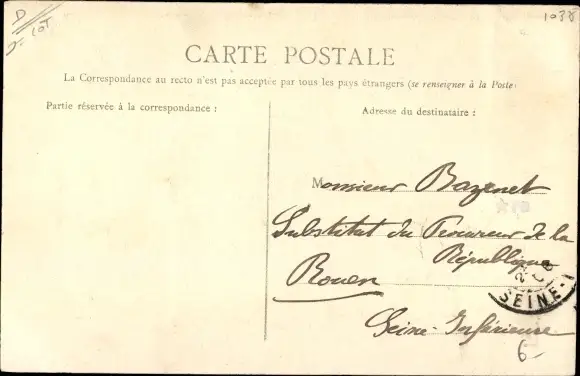 D
LOT
1038
CARTE POSTALE
La Correspondance au recto n'est pas acceptée par tous les pays étrangers (se renseigner à la Poste)
Partie réservée à la correspondance :
Adresse du destinataire :
Monsieur Bazenet
Substitut du Procureur de la
République
Rouen
SEINE-
Seine-Inférieure
6-